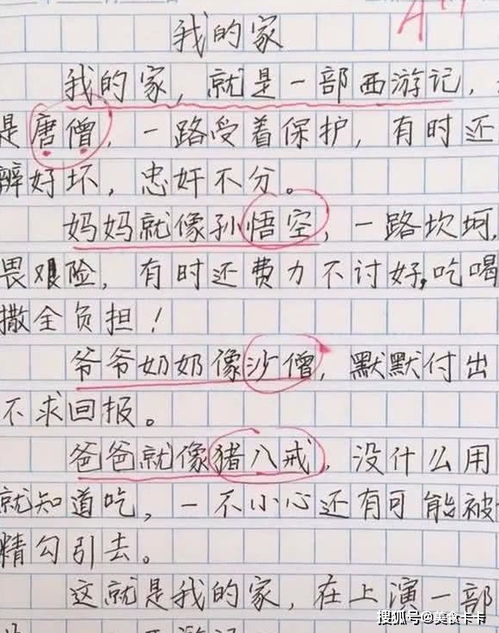 我的家
A+
我的家，就是一部西游记，
是唐僧，一路受着保护，有时还
辨好坏，忠奸不分。
妈妈就像孙悟空，一路坎坷，
畏艰险，有时还费力不讨好，吃喝
撒全负担！
爷爷奶奶像沙僧，默默付出
不求回报。
爸爸就像猪八戒，没什么用
就知道吃，一不小心还有可能被
精勾引去。
这就是我的家，在上演一部
搜狐号@美食卡卡